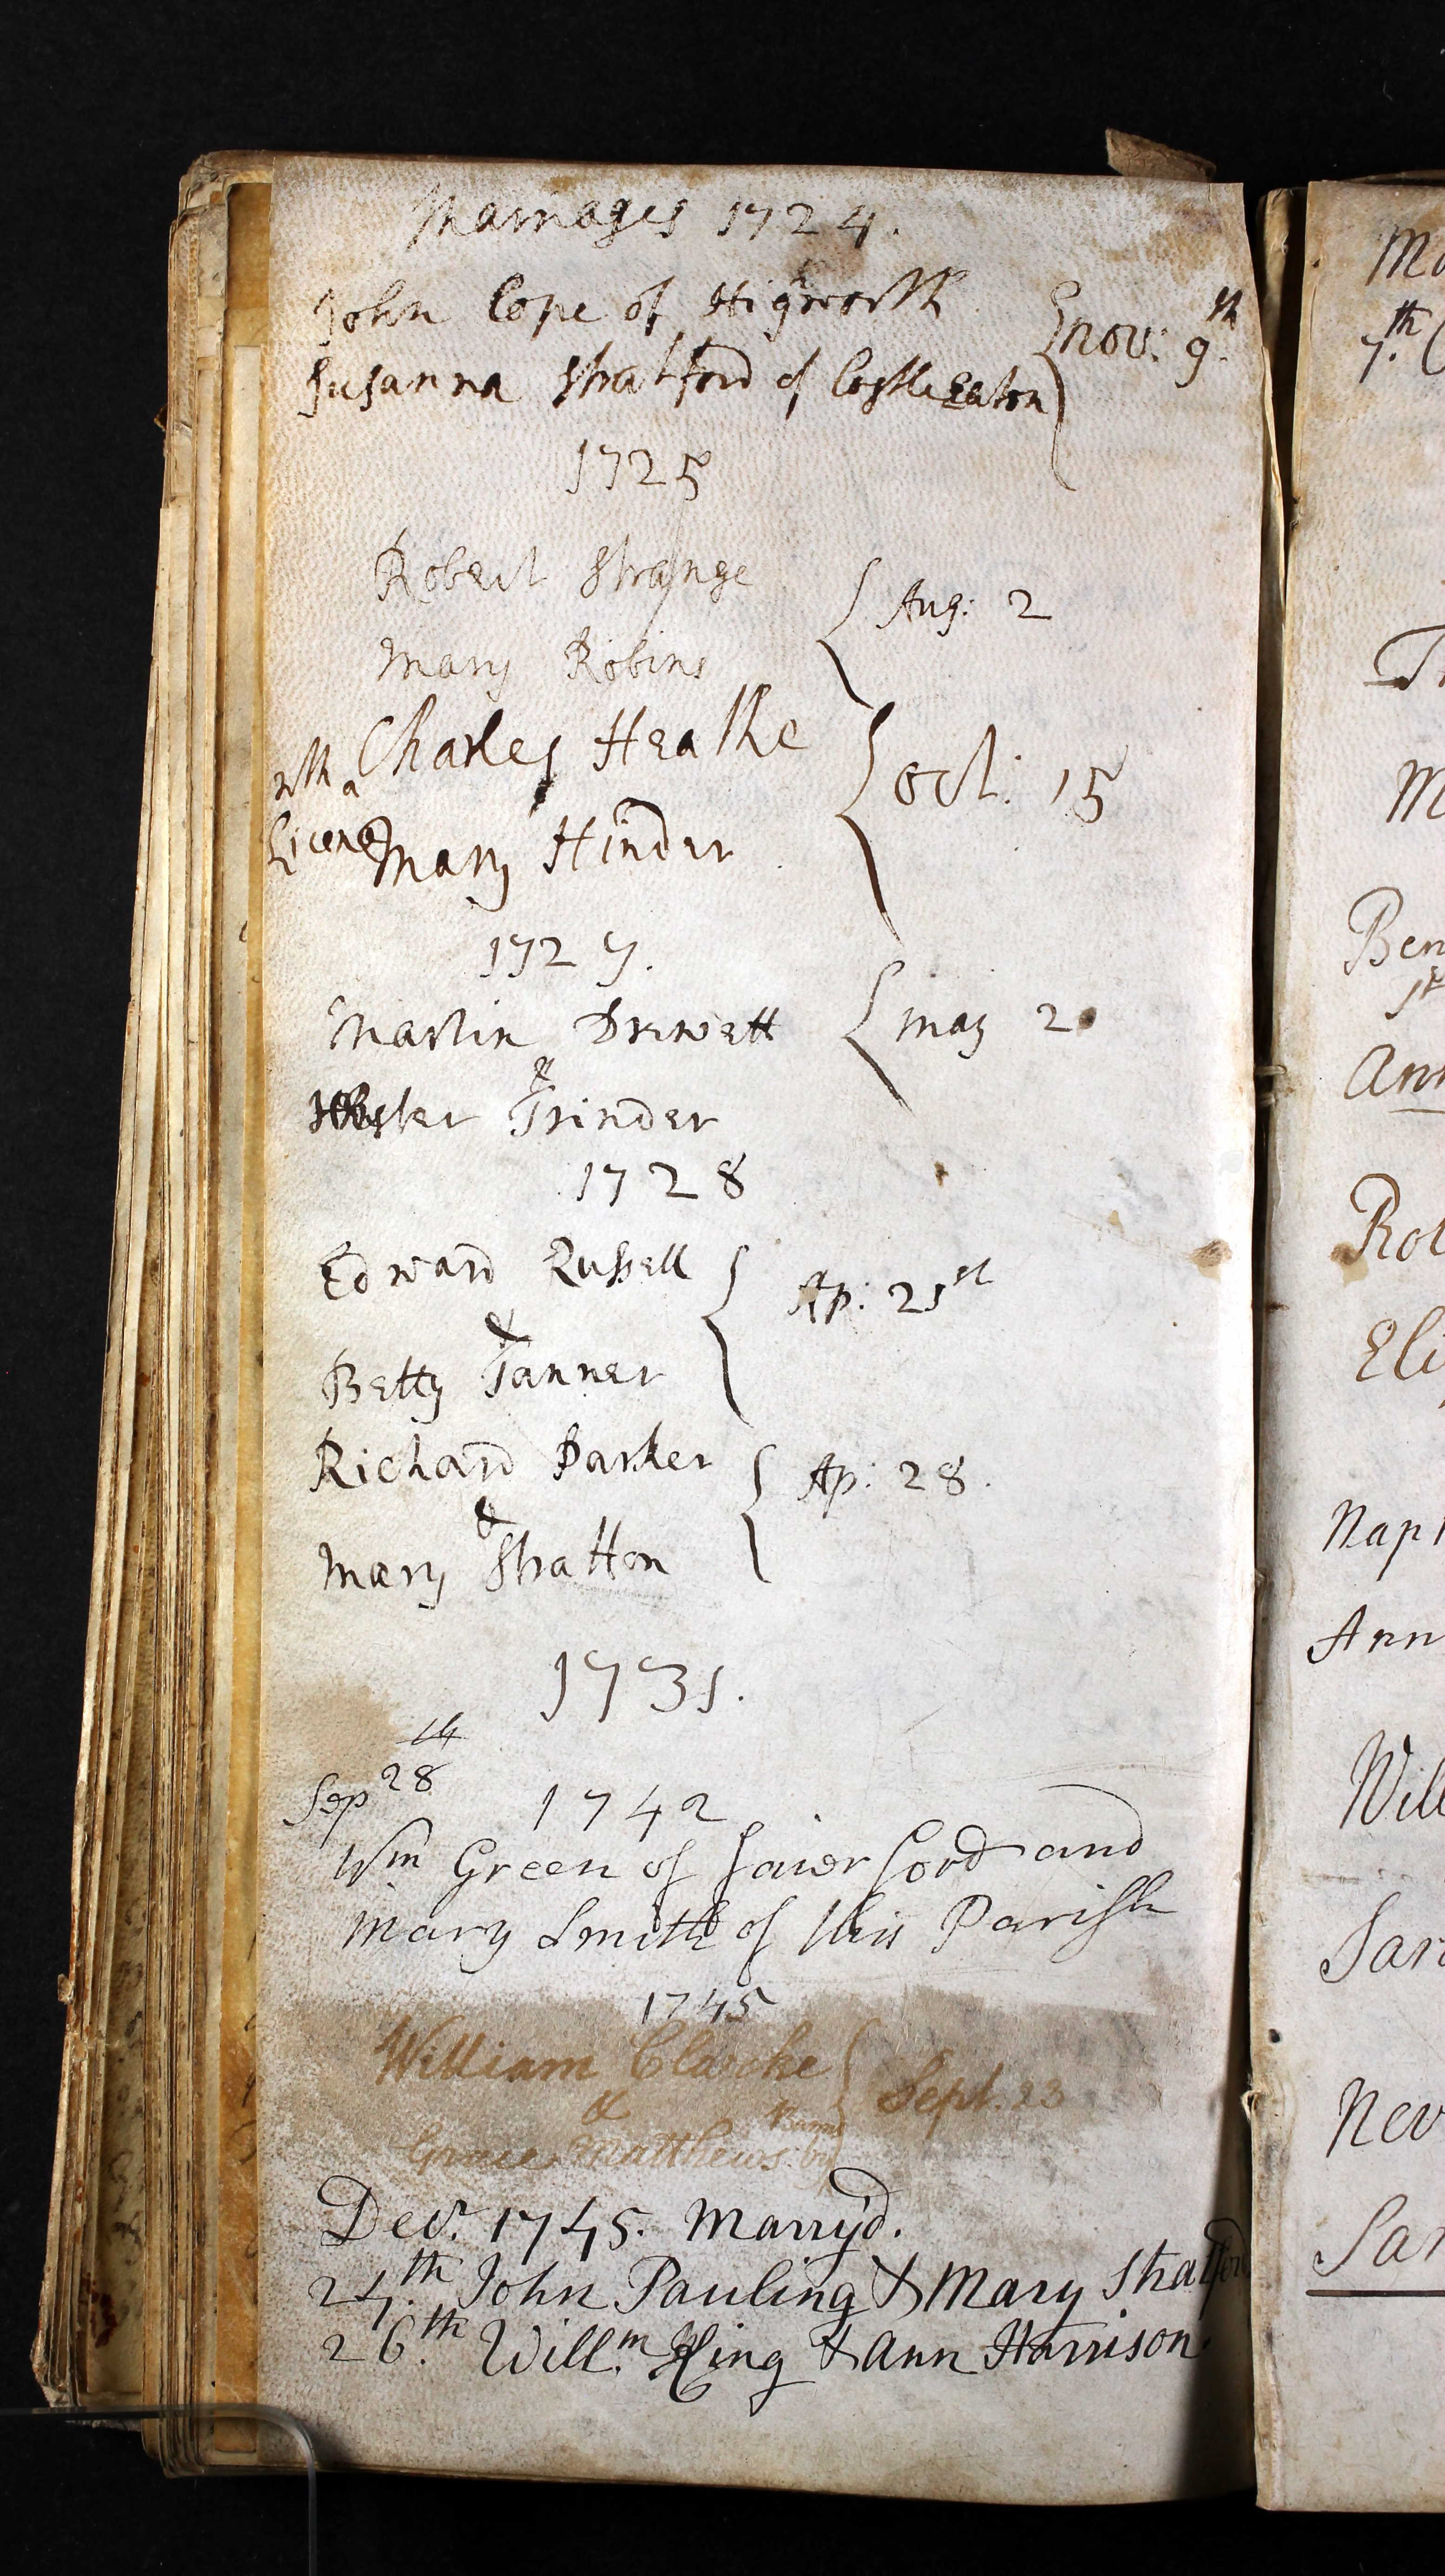 Marriages 1724.
John Cope of Highworth
Susanna Stratford of Castle Eaton
Nov: 9th
1725
Robert Strange
Aug: 2
Mary Robins
Charles Heathe
wth a
Licence
Oct: 15
Mary Hinder
1727.
Martin Drewett
May 2
&
Hester Trinder
1728
Edward Russell
Ap: 21st
&
Betty Tanner
Richard Parker
Ap: 28.
&
Mary Stratton
1731.
Sep 28th
1742
Wm Green of Faierford and
Mary Smith of this Parish
1745
William Clarcke
&
Sept. 23
Grace Matthews by Banns
Decr. 1745. Marry'd.
24th. John Pauling & Mary Stratford
26th. Willm. King & Ann Harrison.
Ma
7.th
Th
M
Ben
Ann
Rob
Eli
Nap
Ann
Will
Sar
Nev
Sar